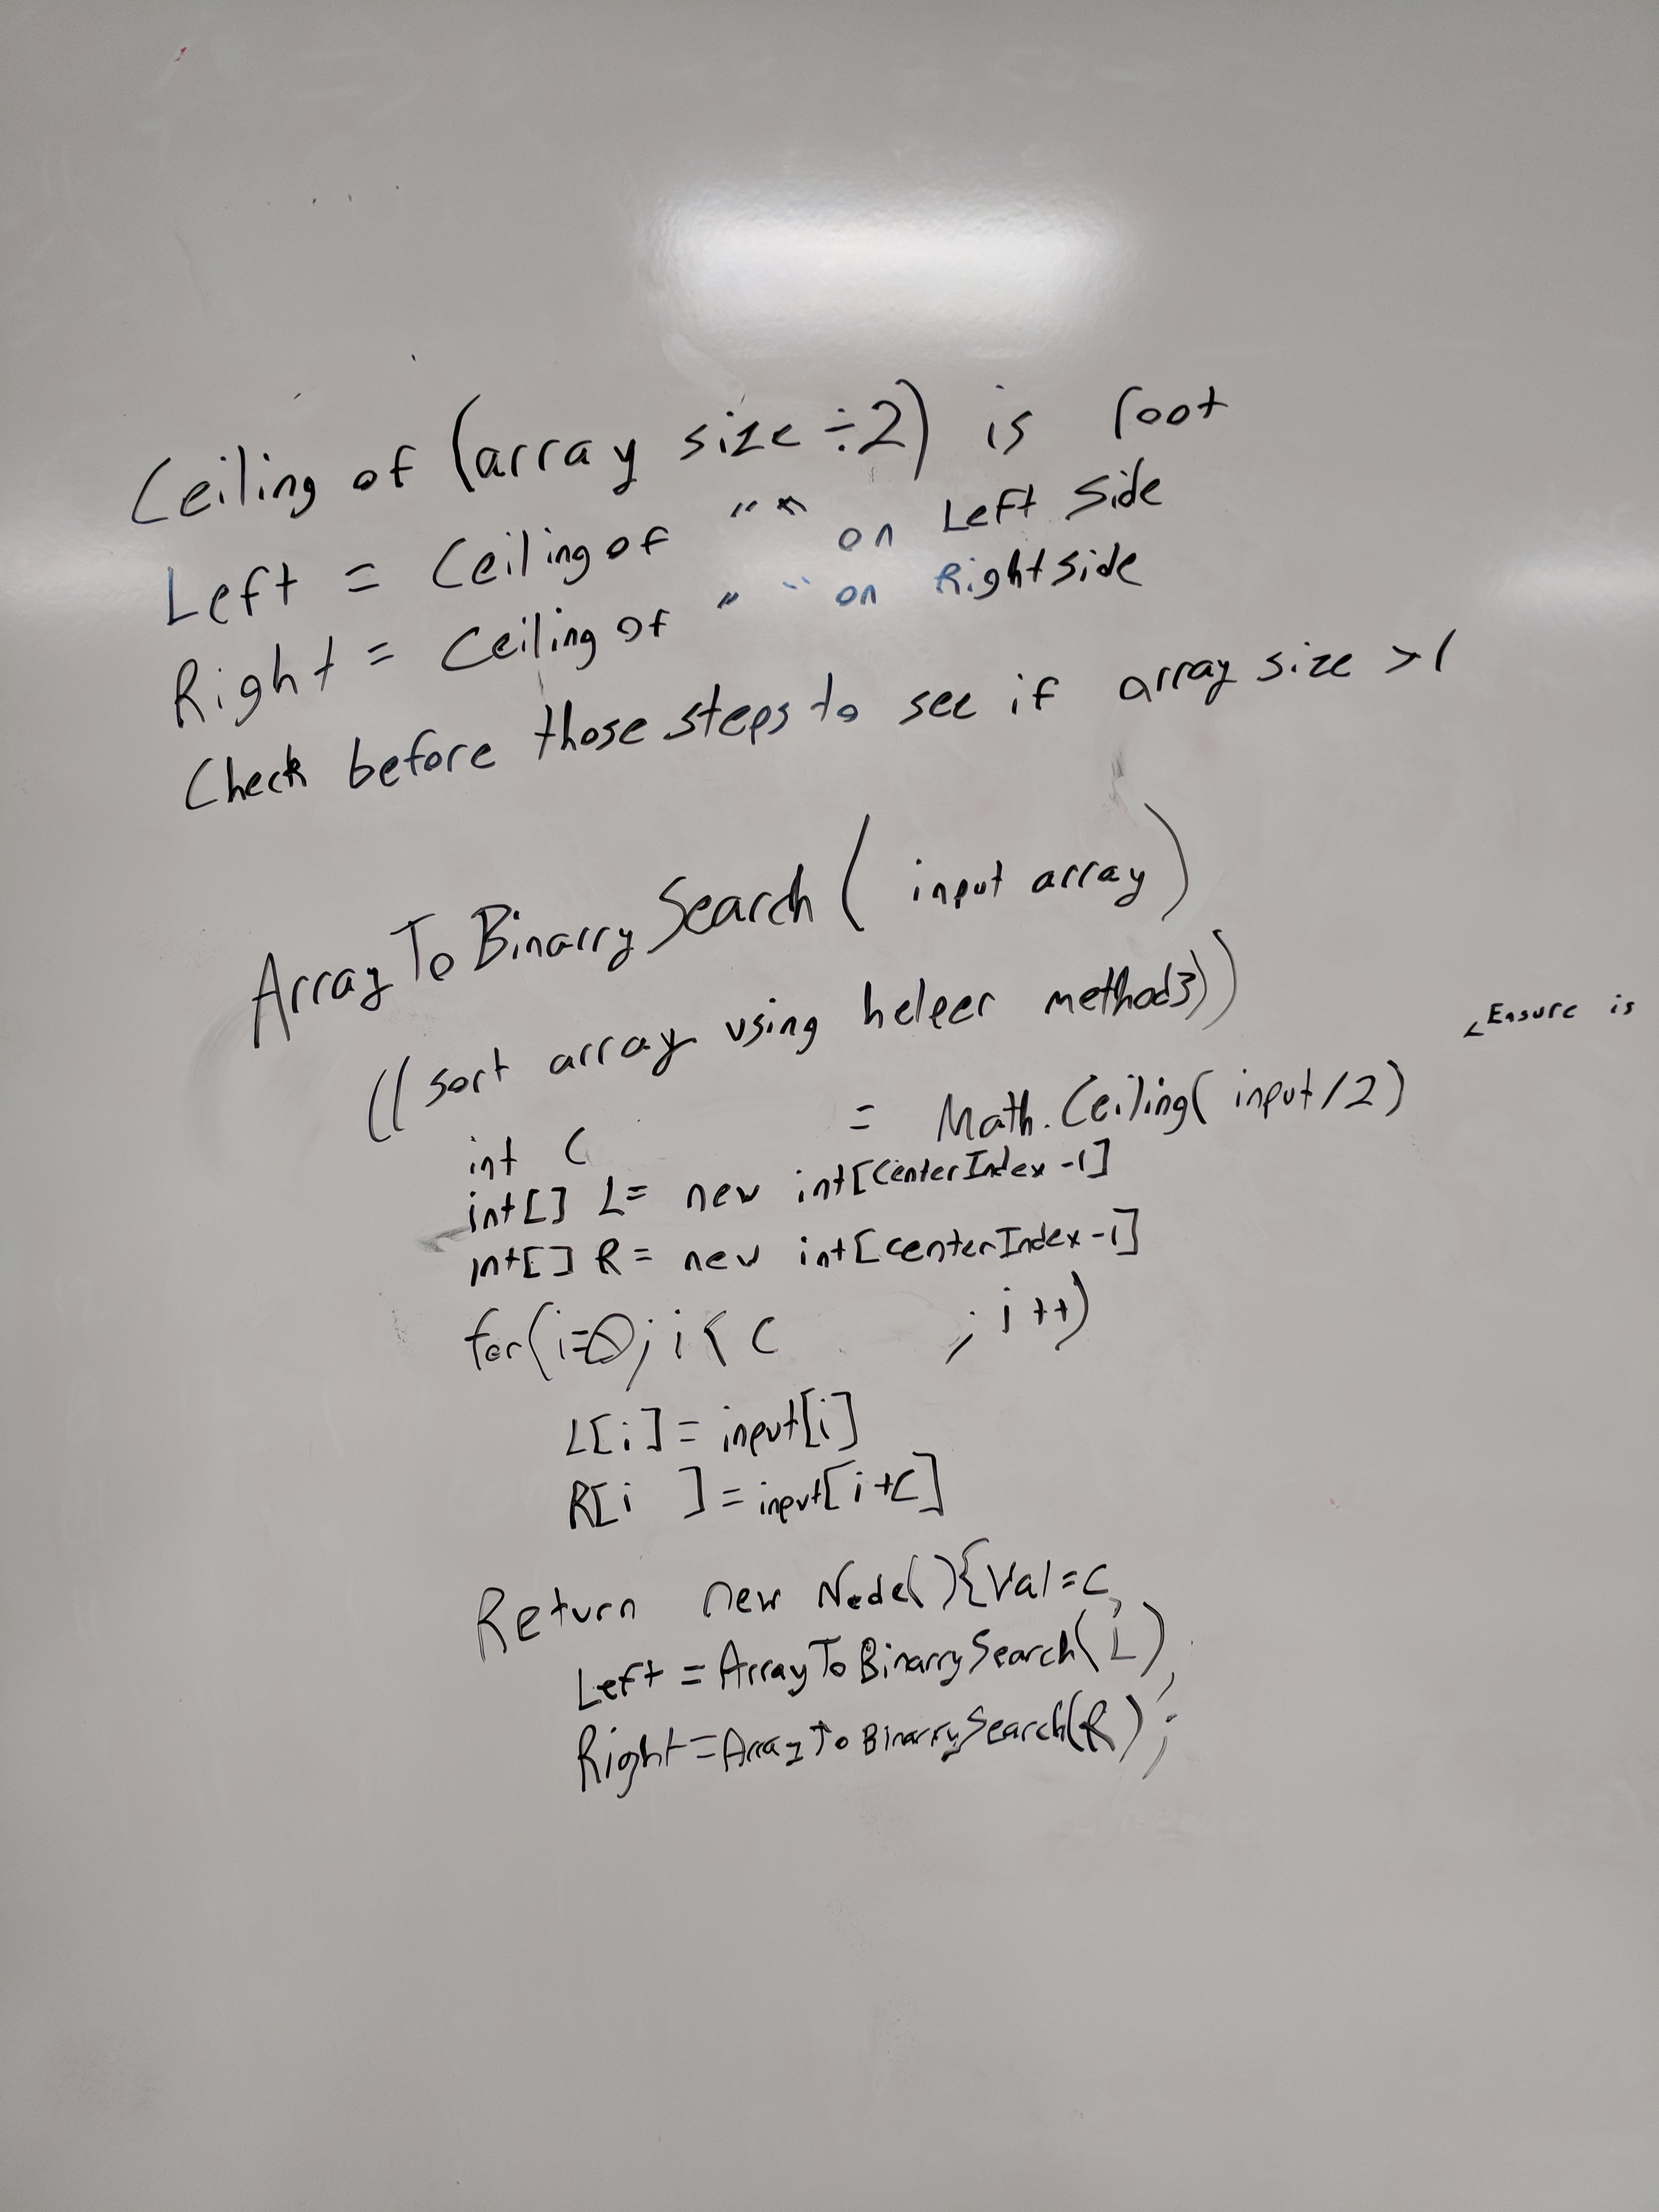 Ceiling of (array size ÷2) is root
Left = Ceiling of " " on Left side
Right = Ceiling of " " on Right side
Check before those steps to see if array size >1
ArrayToBinarrySearch( input array)
((sort array using helper methods))
<Ensure is
int C = Math.Ceiling( input/2)
int[] L= new int[CenterIndex-1]
int[] R= new int[CenterIndex-1]
for(i=0; i< C ; i++)
L[i]=input[i]
R[i ]=input[i+C]
Return new Node(){Val=C,
Left =ArrayToBinarrySearch(L),
Right=ArrayToBinarrySearch(R);